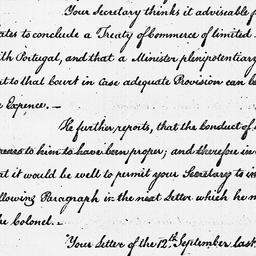 Your Secretary thinks it adviseable f
ates to conclude a Treaty of Commerce of limited
ith Portugal, and that a Minister plenipotentiary
t to that Court in case adequate Provision can be
e Expence.—
He further reports, that the Conduct of
to him to have been proper; and therefore in
at it would be well to permit your Secretary to in
llowing Paragraph in the next Letter which he m
he Colonel.—
Your Letter of the 12th. September last